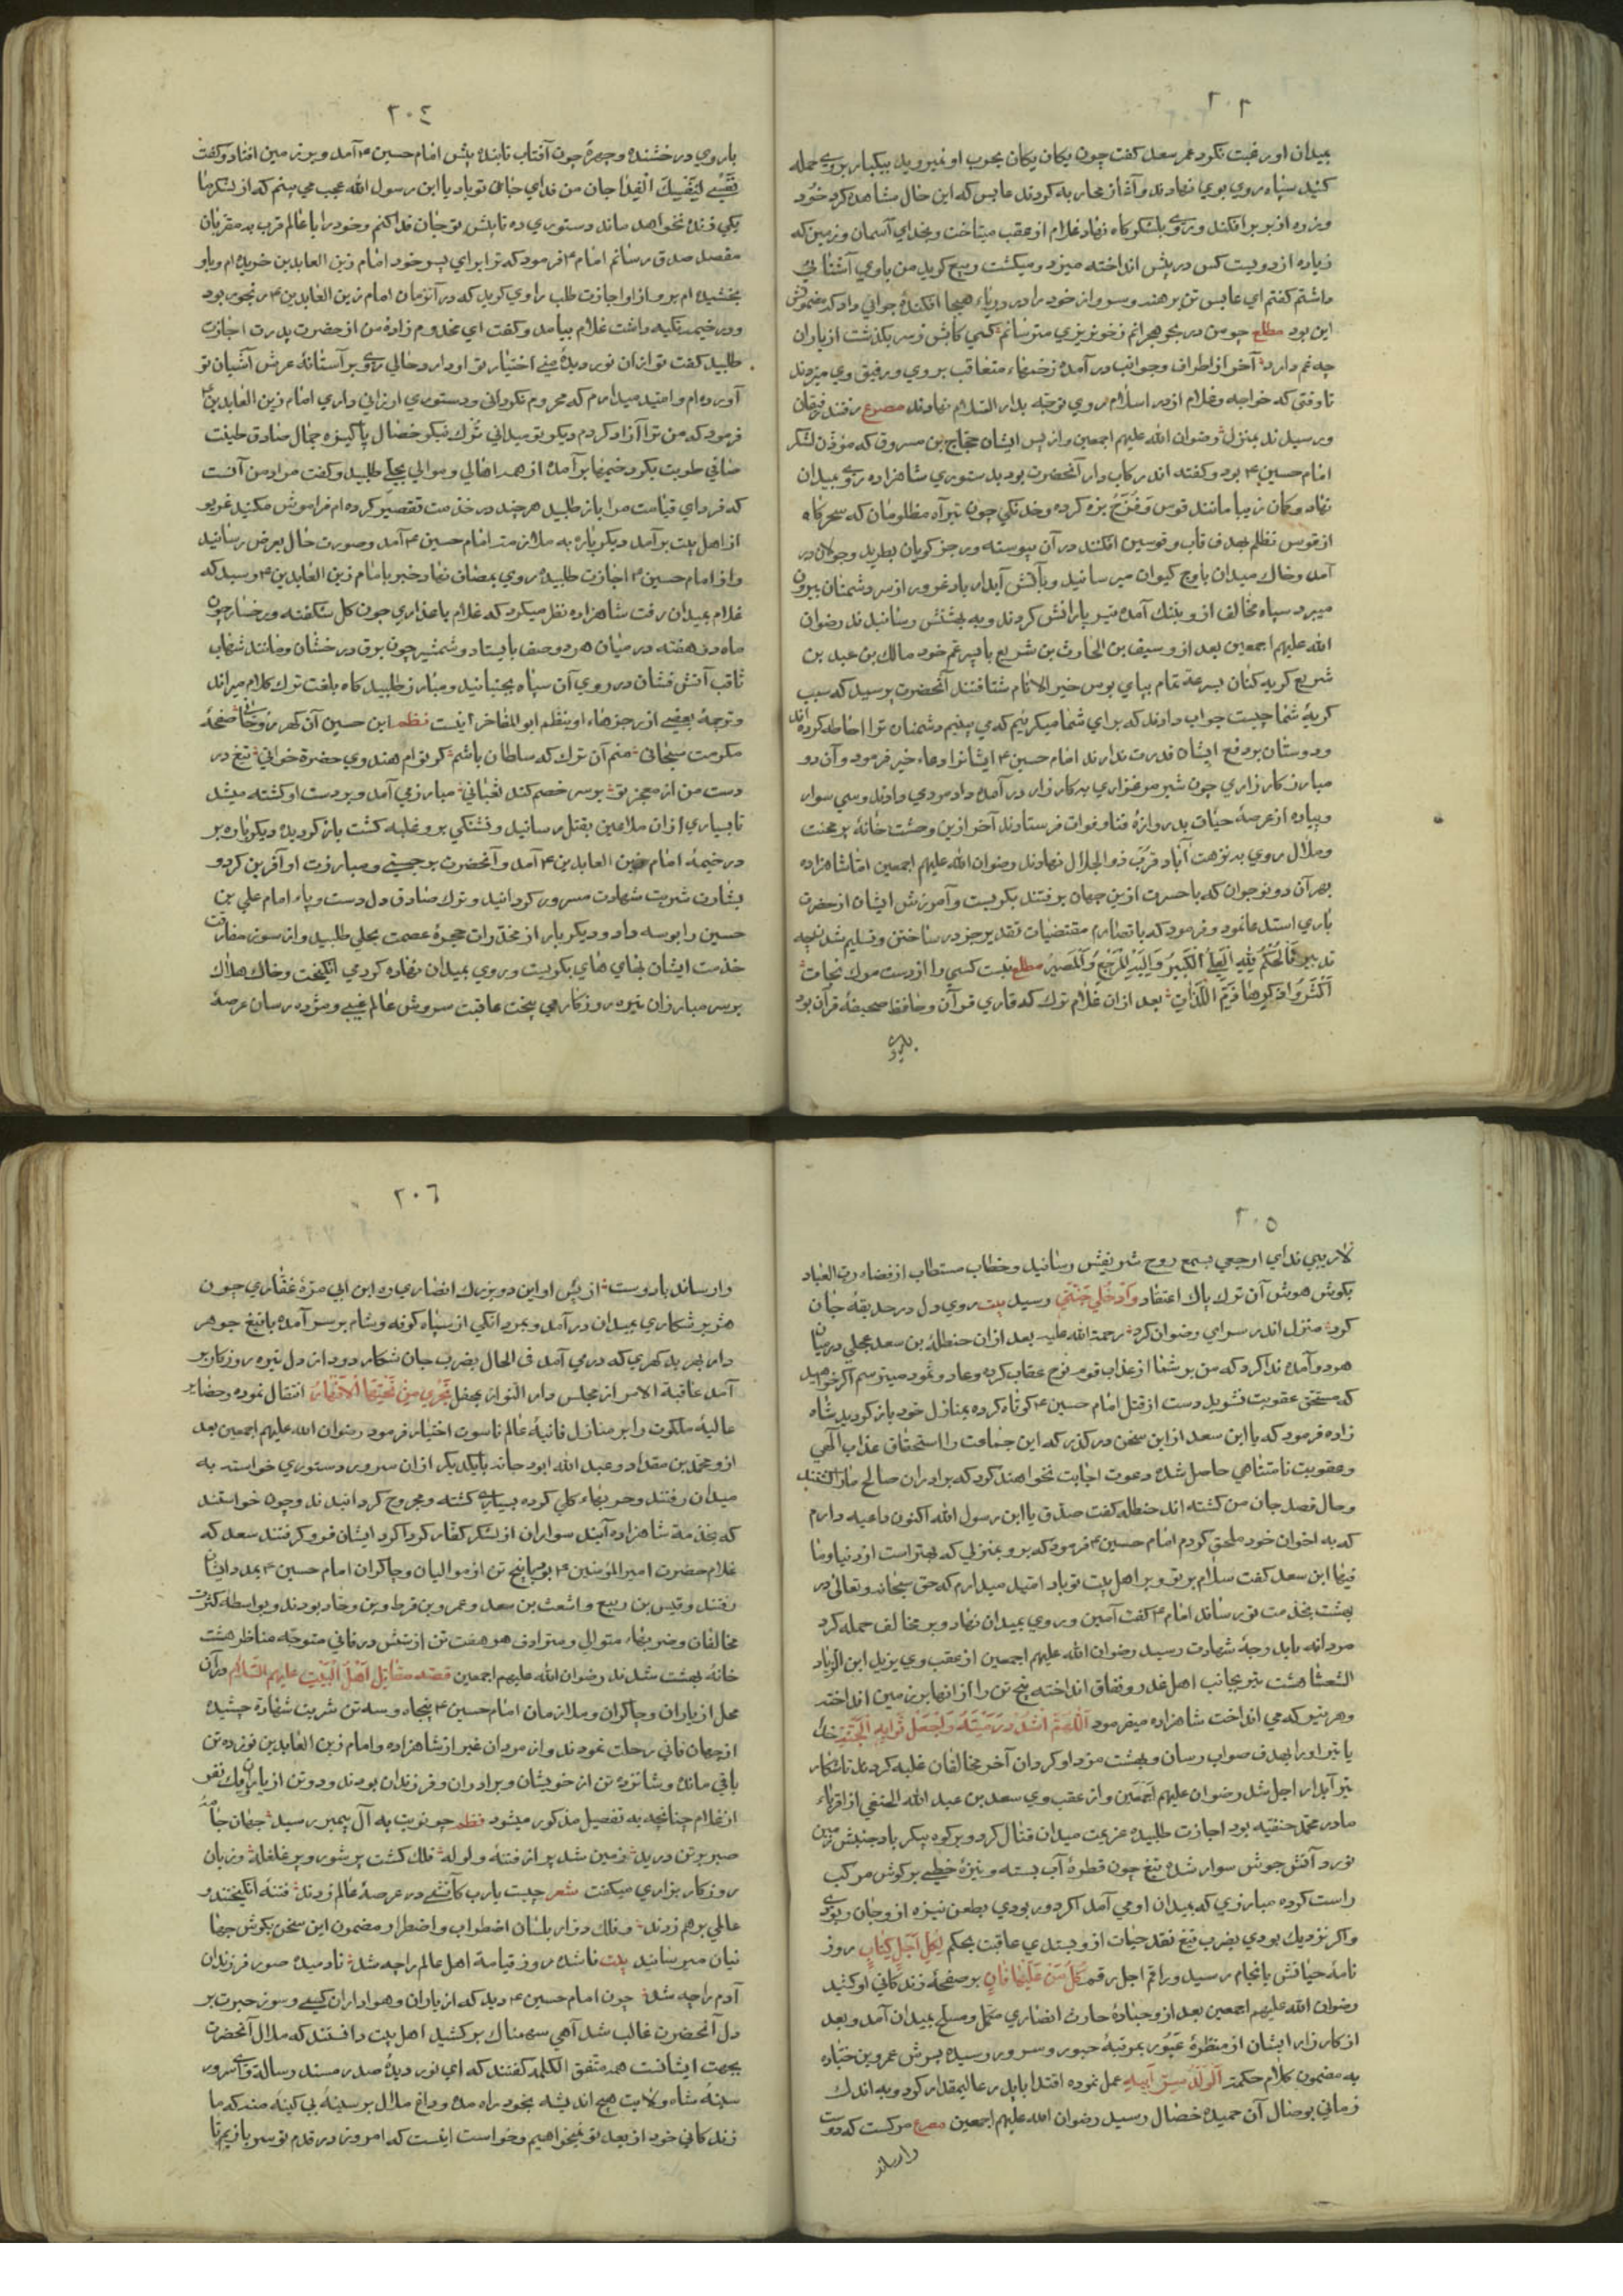 ٢٠٣
بمیدان او رغبت نکرد عمر سعد کفت چون یکان یکان بحرب او نمیروید بیکبار بروی حمله
کنید سپاه روی بوی نهادند و آغاز محاربه کردند عابس که این حال مشاهده کرد خود
و زره از بر برافکند و روی بلشکرکاه نهاد غلام از عقب میتاخت و بخدای آسمان و زمین که
زیاده از دویست کس در پیش انداخته میزد و میکشت ربیع کوید من با وی آشنائی
داشتم کفتم ای عابس تن برهنه و سر واز خود را در دریاء هیجا افکندهٔ جوابی داد که مضمونش
این بود مطلع چو من در بحر هجرانم ز خونریزی مترسانم کسی کآبش ز سر بکذشت از باران
چه غم دارد آخر از اطراف و جوانب در آمده زخمهاء متعاقب بر وی و رفیق وی میزدند
تا وقتی که خواجه و غلام از در اسلام روی توجه بدار السلام نهادند مصرع رفتند رفیقان
و رسیدند بمنزل رضوان الله علیهم اجمعین و از پس ایشان حجاج بن مسروق که مؤذن لشکر
امام حسین ع بود و کفته اند رکاب دار آنحضرت بود بدستوری شاهزاده روی بمیدان
نهاد و کمان زیبا مانند قوس و قزح بزه کرده و خدنکی چون تیر آه مظلومان که سحرکاه
از قوس تظلم بهدف قاب و قوسین افکنند در آن پیوسته و رجز کویان بطرید و جولان در
آمد و خاك میدان باوج کیوان میرسانید و بآتش آبدار باد غرور از سر دشمنان بیرون
میبرد سپاه مخالف ازو بتنك آمده تیر بارانش کردند و به بهشتش رسانیدند رضوان
الله علیهم اجمعین بعد ازو سیف بن الحارث بن شریع با پسر عم خود مالك بن عبد بن
شریع کریه کنان بسرعة تمام بپای بوس خیر الانام شتافتند آنحضرت پرسید که سبب
کریهٔ شما چیست جواب دادند که برای شما میکرئیم که می بینیم دشمنان ترا احاطه کرده اند
و دوستان بر دفع ایشان قدرت ندارند امام حسین ع ایشانرا دعاء خیر فرمود و آن دو
مبارز کارزاری چون شیر مرغزاری بدکارزار در آمده داد مردی دادند و سی سوار
و پیاده از عرصهٔ حیات بدروازهٔ فنا و فوات فرستادند آخر ازین وحشت خانهٔ پر محنت
و ملال روی به نزهت آباد قرب ذو الجلال نهادند رضوان الله علیهم اجمعین امّا شاهزاده
بهر آن دو نوجوان که با حسرت ازین جهان برفتند بکریست و آمرزش ایشان از حضرت
باری استدعا نمود و فرمود که با قضا رم مقتضیات تقدیر جز در ساختن و تسلیم شدن چه
تدبیر فَالْحُکْمُ لِلّٰهِ الْعَلِیِّ الْکَبِیرِ وَاِلَیْهِ الْمَرْجِعُ وَالْمَصِیرُ مطلع نیست کسی را از دست مرك نجات
اَکْثِرُوا ذِکْرَ هَادِمِ اللَّذّاتِ بعد ازان غلام ترك که قاری قرآن و حافظ صحیفهٔ فرقان بود
٢٠٤
با روی درخشنده و چهرهٔ چون آفتاب تابنده پیش امام حسین ع آمد و بر زمین افتاد و کفت
نَفْسِی لِنَفْسِكَ الْفِدا جان من فدای خاك تو باد یا ابن رسول الله عجب می بینم که از لشکر ما
یکی زنده نخواهد ماند دستوری ده تا پیش تو جان فدا کنم و خود را با عالم قرب بدمقربان
مقصد صدق رسانم امام ع فرمود که ترا برای پسر خود امام زین العابدین خریده ام و باو
بخشیده ام برو از او اجازت طلب راوی کوید که در آنزمان امام زین العابدین ع رنجور بود
و در خیمه تکیه داشت غلام بیامد و کفت ای مخدوم زادهٔ من از حضرت پدرت اجازت
طلبیدم کفت تو ازان نور دیدهٔ منی اختیار تو او دارد حالی روی بر آستانهٔ عرش آشیان تو
آورده ام و امید میدارم که محروم نکردانی و دستوری ارزانی داری امام زین العابدین ع
فرمود که من ترا آزاد کردم دیکر تو میدانی تُرك نیکو خصال پاکیزه جمال صادق طینت
صافی طویت بکرد خیمها بر آمده از همه اهالی و موالی بحلی طلبید و کفت مراد من آنست
که فردای قیامت مرا باز طلبید هر چند در خدمت تقصیر کرده ام فراموش مکنید غریو
از اهل بیت بر آمد دیکر باره به ملازمت امام حسین ع آمد و صورت حال بعرض رسانید
و از امام حسین ع اجازت طلبیده روی بمصاف نهاد خبر بامام زین العابدین ع رسید که
غلام بمیدان رفت شاهزاده نظر میکرد که غلام با عذاری چون کل شکفته و رخسار چون
ماه دو هفته در میان هر دو صف بایستاد و شمشیر چون برق درخشان و مانند شهاب
ثاقب آتش فشان در روی آن سپاه بجنبانید و مبارز طلبید کاه بلغت ترك کلام میراند
و ترجمهٔ بعضی از رجزهاء او بنظم ابو المفاخر اینست نظم
مکرمت سبحانی منم آن ترك که سلطان باشم کر تو ام هندوی حضرة خوانی تیغ در
دست من از معجز تو بر سر خصم کند ثعبانی مبارز می آمد و بر دست او کشته میشد
تا بسیاری ازان ملاعین بقتل رسانید و تشنکی برو غلبه کشت باز کردیده دیکر باره بر
در خیمهٔ امام زین العابدین ع آمد و آنحضرت بر چستی و مبارزت او آفرین کرد و
بشارت شربت شهادت مسرور کردانید و ترك صادق دل دست و پاء امام علی بن
حسین را بوسه داد و دیکر بار از مخدّرات حجرهٔ عصمت بحلی طلبید و از سوز مفارقت
خدمت ایشان بهای های بکریست و روی بمیدان نهاده کرد می انکیخت و خاك هلاك
بر سر مبارزان تیره روزکار می بیخت عاقبت سروش عالم غیبی و مژده رسان عرصهٔ
٢٠٥
لاریبی ندای ارجعی بسمع روح شریفش رسانید و خطاب مستطاب از فضاء رب العباد
بکوش هوش آن ترك پاك اعتقاد وَادْخُلِی جَنَّتِی رسید بیت روی دل در حدیقهٔ جان
کرد منزل اندر سرای رضوان کرد رحمة الله علیه بعد ازان حنظلة بن سعد عجلی در میان
هر دو آمده ندا کرد که من بر شما از عذاب قوم نوح عقاب کرده و عاد و ثمود میترسم اکر خواهید
که مستحق عقوبت نشوید دست از قتل امام حسین ع کوتاه کرده بمنازل خود باز کردید شاه
زاده فرمود که یا ابن سعد ازین سخن درکذر که این جماعت را استحقاق عذاب الهی
و عقوبت نامتناهی حاصل شده دعوت اجابت نخواهند کرد که برادران صالح ما را کشتند
و حال قصد جان من کشته اند حنظله کفت صدق یا ابن رسول الله اکنون داعیه دارم
که به اخوان خود ملحق کردم امام حسین ع فرمود که برو بمنزلی که بهتر است از دنیا و ما
فیها ابن سعد کفت سلام بر تو و بر اهل بیت تو باد امید میدارم که حق سبحانه و تعالی در
بهشت بخدمت تو رساند امام ع کفت آمین و روی بمیدان نهاد و بر مخالف حمله کرد
مردانه باید رجهٔ شهادت رسید رضوان الله علیهم اجمعین از عقب وی یزید ابن الزیاد
الشعثا هشت تیر بجانب اهل غدر و نفاق انداخته پنج تن را از انها بر زمین انداخته
و هر تیر که می انداخت شاهزاده میفرمود اَللّٰهُمَّ اسْدُدْ رَمْیَتَهُ وَاجْعَلْ ثَوابَهُ الْجَنَّةَ خدا
یا تیر او را بهدف صواب رسان و بهشت مزد او کردان آخر مخالفان غلبه کردند تا شکار
تیر آبدار اجل شد رضوان علیهم اجمعین و از عقب وی سعد بن عبد الله الحنفی از اقرباء
مادر محمد حنفیه بود اجازت طلبیده عزیمت میدان قتال کرد و بر کوه پیکر باد جنبش زمین
نورد آتش جوش سوار شد تیغ چون قطرهٔ آب بسته و نیزهٔ خطی بر کوش مرکب
راست کرده مبارزی که بمیدان او می آمد اکر دور بودی بطعن نیزه ازو جان ربودی
و اکر نزدیك بودی بضرب تیغ نقد حیات ازو بستدی عاقبت بحکم لِکُلِّ اَجَلٍ کِتابٌ روز
نامهٔ حیاتش بانجام رسید و راقم اجل رقم کُلُّ مَنْ عَلَیْها فانٍ بر صفحهٔ زندکانی او کشید
رضوان الله علیهم اجمعین بعد ازو جنادهٔ حارث انصاری مکمل و مسلح بمیدان آمد و بعد
از کارزار ایشان از منظرهٔ عبور بمرتبهٔ حبور و سرور رسیده پسرش عمرو بن جناده
به مضمون کلام حکمة اَلْوَلَدُ سِرُّ اَبِیهِ عمل نموده اقتدا بپدر عالیمقدار کرد و به اندك
زمانی بوصال آن حمیده خصال رسید رضوان الله علیهم اجمعین مصرع مرکست که دوست
وارساند
٢٠٦
وارساند با دوست از پس او این دو بزرك انصاری مره ابن ابی مرهٔ غفاری چون
هژبر شکاری بمیدان در آمد و بمردانکی از سپاه کوفه و شام بر سر آمده با تیغ جوهر
دار بهر بدکهری که در می آمد فی الحال بضرب جان شکار دود از دل تیره روزکار بر
آمد عاقبة الامر از مجلس دار البوار بمحفل تَجْرِی مِنْ تَحْتِهَا الْاَنْهارُ انتقال نموده و حضایر
عالیهٔ ملکوت را بر منازل فانیهٔ عالم ناسوت اختیار فرمود رضوان الله علیهم اجمعین بعد
ازو محمد بن مقداد و عبد الله ابو دجانه بایکدیکر ازان سرور دستوری خواسته به
میدان رفتند و حربهاء کلی کرده بسیاری کشته و مجروح کردانیدند و چون خواستند
که بخدمة شاهزاده آیند سواران از لشکر کفار کرداکرد ایشان فرو کرفتند سعد که
غلام حضرت امیر المؤمنین ع بود با پنج تن از موالیان و چاکران امام حسین ع بمدد ایشان
رفتند و قیس بن ربیع و اشعث بن سعد و عمر و بن قرط و بن و حماد بودند و بواسطه کثرت
مخالفان و ضربهاء متوالی و مترادف هر هفت تن از تنش درفانی متوجّه مناظر هشت
خانهٔ بهشت شدند رضوان الله علیهم اجمعین قصهٔ مقابل اَهْلُ الْبَیْت علیهم السّلام در آن
محل از یاران و چاکران و ملازمان امام حسین ع پنجاه و سه تن شربت شهادة چشیده
از جهان فانی رحلت نمودند و از مردان غیر از شاهزاده و امام زین العابدین نوزده تن
باقی مانده و شانزده تن از خویشان و برادران و فرزندان بودند و دو تن از یاران و یك نفر
از غلام چنانچه به تفصیل مذکور میشود نظم چو نوبت به آل پیمبر رسید جهان جامهٔ
صبر بر تن درید زمین شد پر از فتنهٔ و لوله فلك کشت پر شور و پر غلغله و زبان
روزکار بزاری میکفت شعر چیست یارب کآتشی در عرصهٔ عالم زدند فتنهٔ انکیختند و
عالمی بر هم زدند و فلك دوار بلسان اضطراب و اضطرار مضمون این سخن بکوش جها
نیان میرسانید بیت فاش شد روز قیامة اهل عالم را چه شد نادمیده صور فرزندان
آدم را چه شد چون امام حسین ع دید که از یاران و هواداران کسی و سوز حیرت بر
دل آنحضرت غالب شد آهی سهمناك بر کشید اهل بیت دانستند که ملال آنحضرت
بجهت ایشانست همه متفق الکلمه کفتند که ای نور دیدهٔ صدر مسند رسالت وی سرور
سینهٔ شاه ولایت هیچ اندیشه بخود راه مده و داغ ملال بر سینهٔ بی کینهٔ منه که ما
زندکانی خود از بعد تو نمیخواهیم و خواست اینست که امروز در قدم تو سر بازیم تا